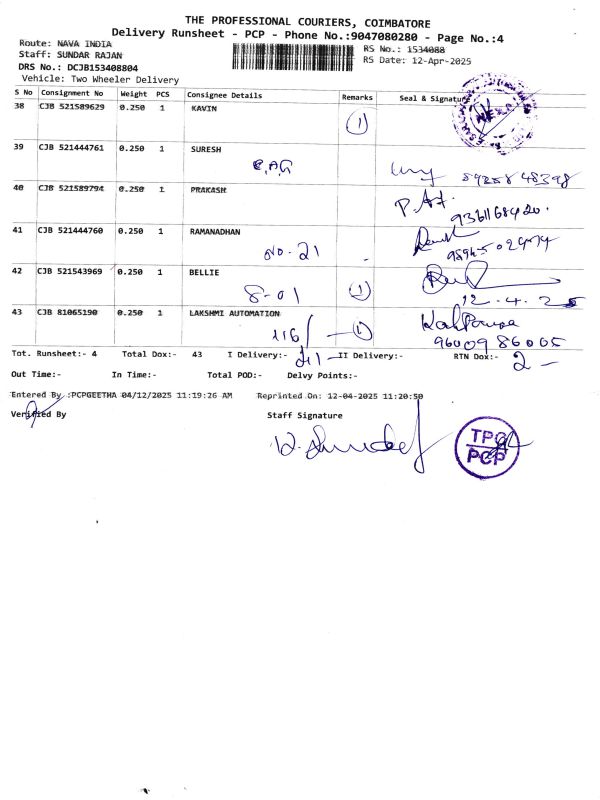 THE PROFESSIONAL COURIERS, COIMBATORE
Delivery Runsheet - PCP - Phone No.:9047080280 - Page No.:4
Route: NAVA INDIA
RS No.: 1534088
Staff: SUNDAR RAJAN
RS Date: 12-Apr-2025
DRS No.: DCJB153408804
Vehicle: Two Wheeler Delivery
S No Consignment No Weight PCS Consignee Details Remarks Seal & Signature
38 CJB 521589629 0.250 1 KAVIN
1
39 CJB 521444761 0.250 1 SURESH
40 CJB 521589794 0.250 1 PRAKASH
9361168420.
41 CJB 521444760 0.250 1 RAMANADHAN
No. 21
42 CJB 521543969 0.250 1 BELLIE
8-01 1
12.4.25
43 CJB 81065190 0.250 1 LAKSHMI AUTOMATION
116/ 1
9600986005
Tot. Runsheet:- 4 Total Dox:- 43 I Delivery:- 41 II Delivery:- RTN Dox:- 2
Out Time:- In Time:- Total POD:- Delvy Points:-
Entered By :PCPGEETHA 04/12/2025 11:19:26 AM Reprinted On: 12-04-2025 11:20:50
Verified By Staff Signature
TPC
PCP